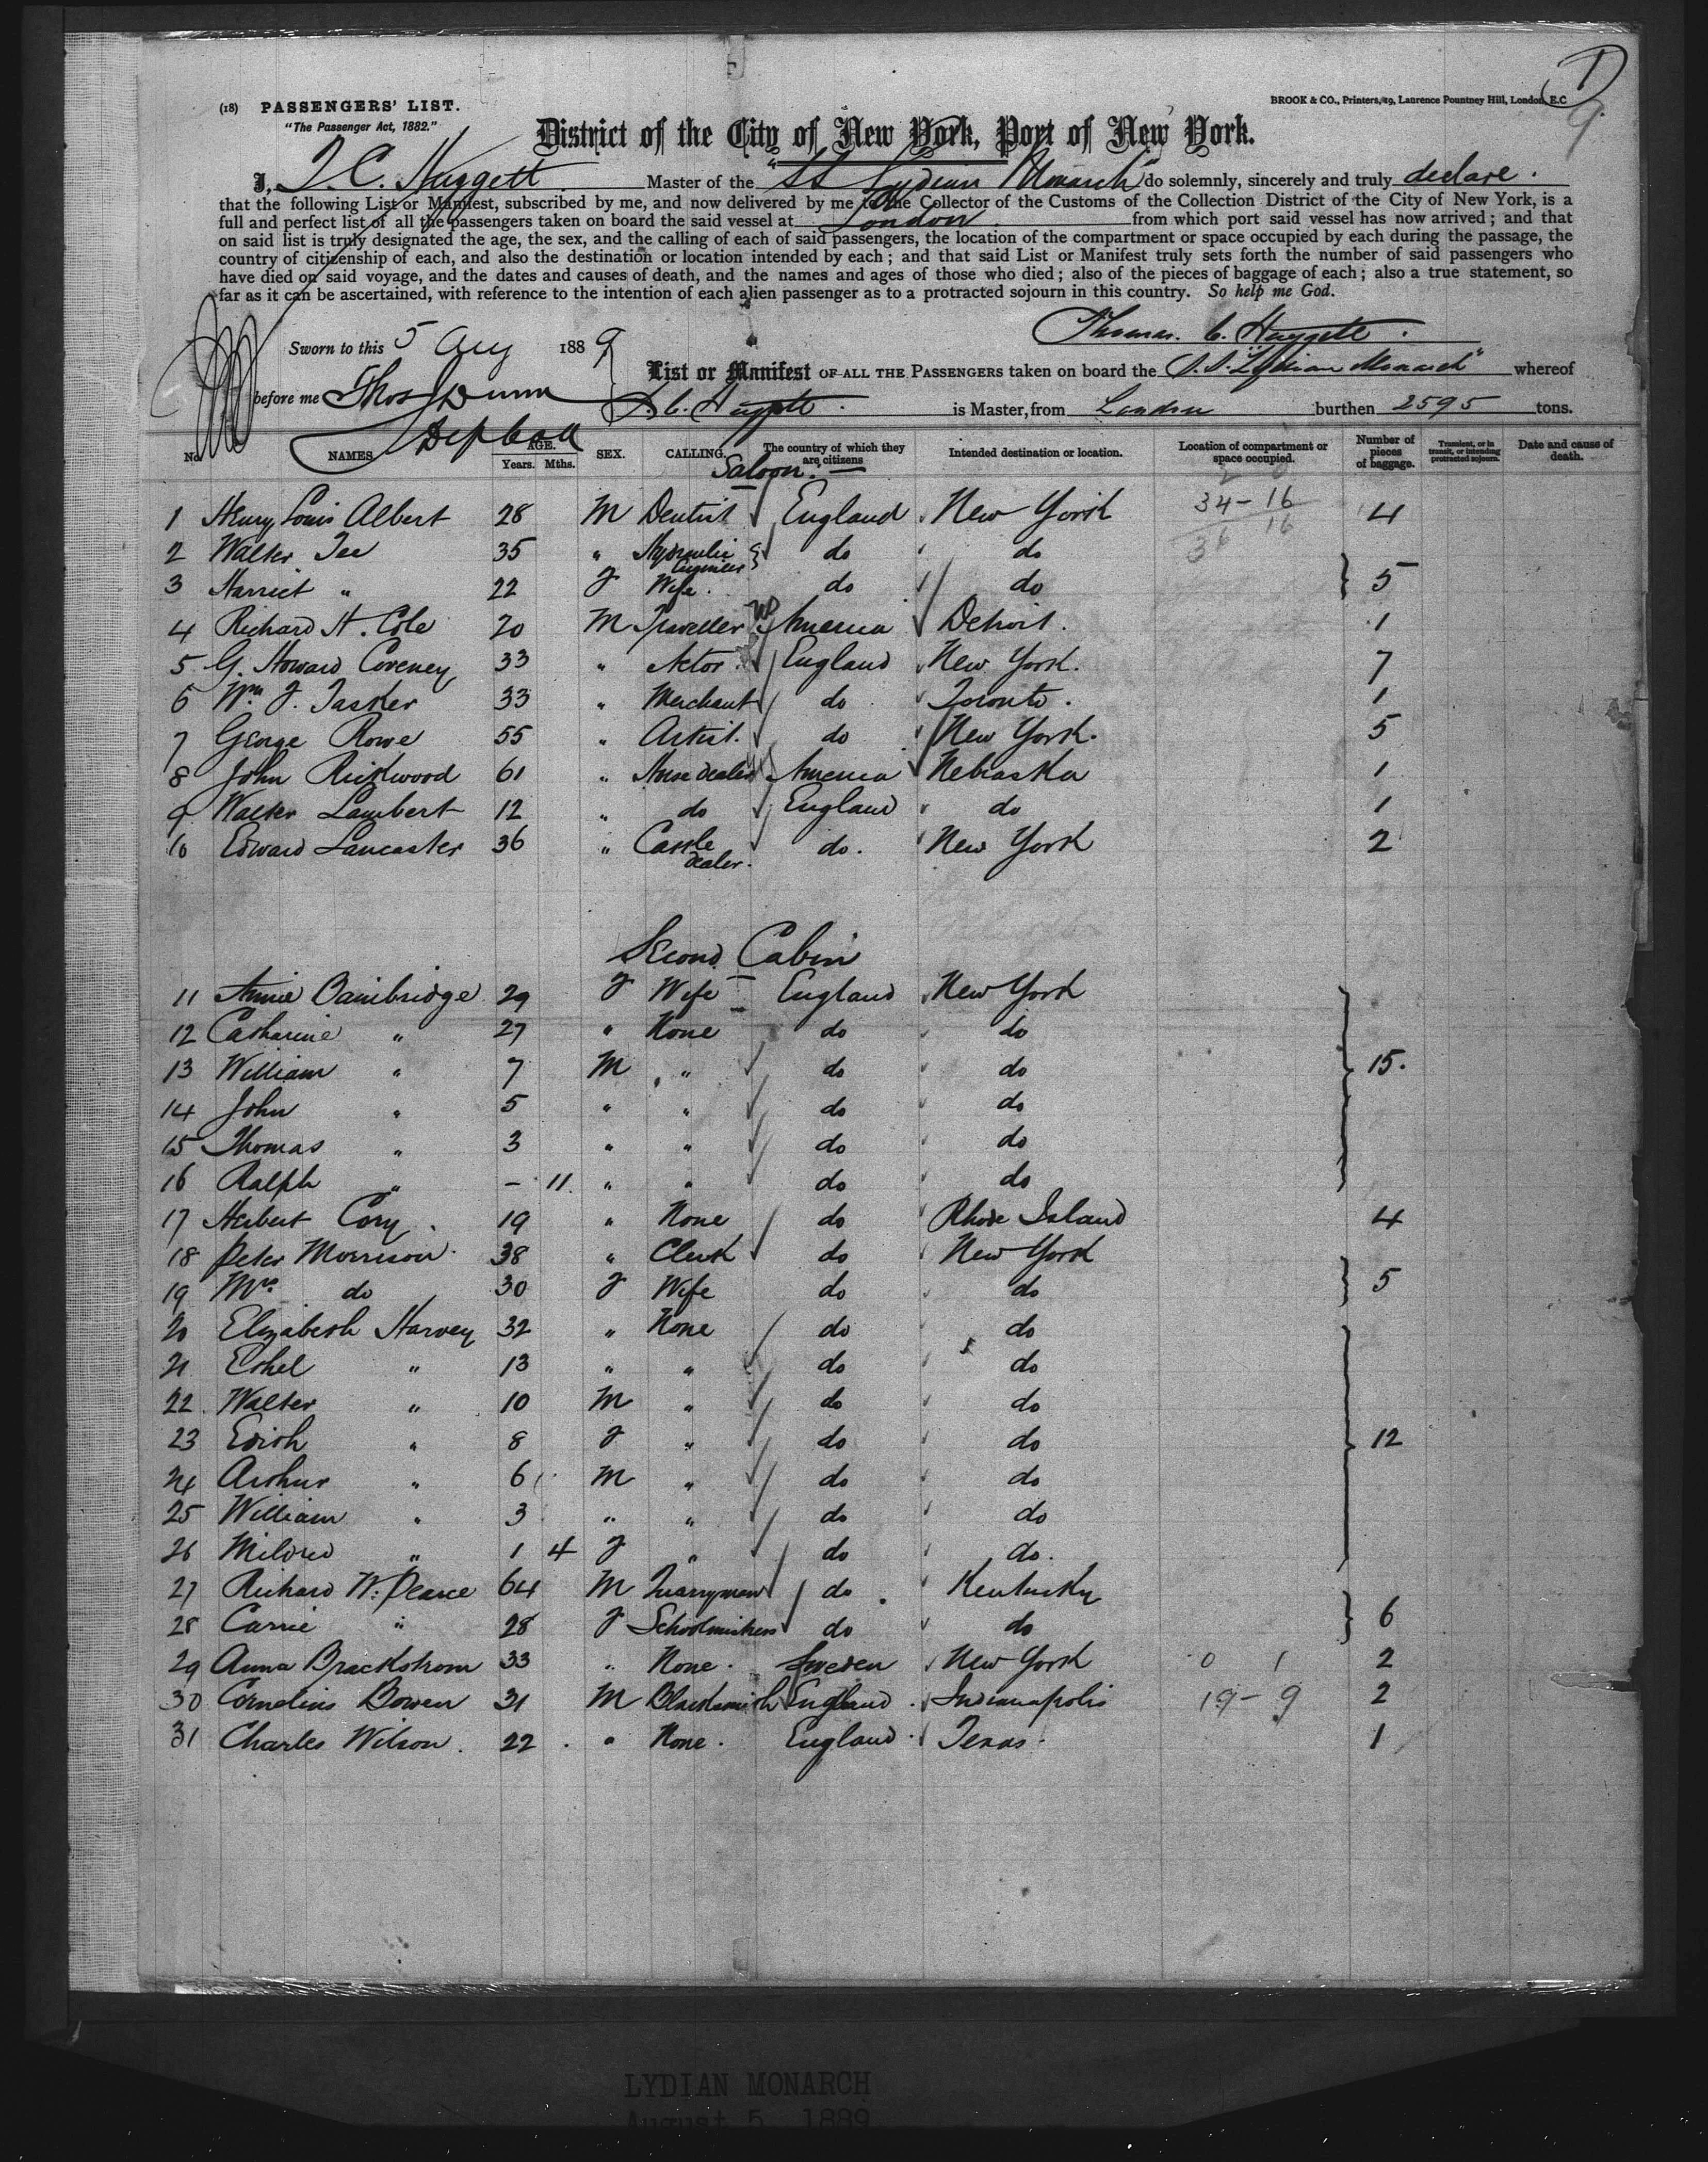 (18) PASSENGERS' LIST.
BROOK & CO., Printers, 19, Laurence Pountney Hill, London, E.C
1
9
"The Passenger Act, 1882."
District of the City of New York, Port of New York.
I, T. C. Huggett Master of the "SS Lydian Monarch" do solemnly, sincerely and truly declare.
that the following List or Manifest, subscribed by me, and now delivered by me to the Collector of the Customs of the Collection District of the City of New York, is a
full and perfect list of all the passengers taken on board the said vessel at London from which port said vessel has now arrived; and that
on said list is truly designated the age, the sex, and the calling of each of said passengers, the location of the compartment or space occupied by each during the passage, the
country of citizenship of each, and also the destination or location intended by each; and that said List or Manifest truly sets forth the number of said passengers who
have died on said voyage, and the dates and causes of death, and the names and ages of those who died; also of the pieces of baggage of each; also a true statement, so
far as it can be ascertained, with reference to the intention of each alien passenger as to a protracted sojourn in this country. So help me God.
Thomas. C. Huggett.
Sworn to this 5 Aug 1889
List or Manifest OF ALL THE PASSENGERS taken on board the S.S. "Lydian Monarch" whereof
before me Thos J Dunn
T. C. Huggett. is Master, from London burthen 2595 tons.
Dep Coll
No. NAMES AGE. Years. Mths. SEX. CALLING. The country of which they are citizens Intended destination or location. Location of compartment or space occupied. Number of pieces of baggage. Transient, or in transit, or intending protracted sojourn. Date and cause of death.
Saloon.
1 Henry Louis Albert 28 M Dentist England New York 34-16 4
2 Walter Tee 35 " Hydraulic Engineer do do 36 16
3 Harriet " 22 F Wife. do do 5
4 Richard H. Cole 20 M Traveller America Detroit. 1
5 G. Howard Coveney 33 " Actor England New York. 7
6 Wm. F. Tasker 33 " Merchant do Toronto. 1
7 George Rowe 55 " Artist. do New York. 5
8 John Rickwood 61 " Horse dealer America Nebraska 1
9 Walter Lambert 12 " do England do 1
10 Edward Lancaster 36 " Cattle dealer. do. New York 2
Second Cabin
11 Annie Bainbridge 29 F Wife England New York
12 Catharine " 27 " None do do
13 William " 7 M " do do 15.
14 John " 5 " " do do
15 Thomas " 3 " " do do
16 Ralph " - 11 " " do do
17 Herbert Cory. 19 " None do Rhode Island 4
18 Peter Morrison. 38 " Clerk do New York
19 Mrs. do 30 F Wife do do 5
20 Elizabeth Harvey 32 " None do do
21 Ethel " 13 " " do do
22 Walter " 10 M " do do
23 Edith " 8 F " do do 12
24 Arthur " 6 M " do do
25 William " 3 " " do do
26 Mildred " 1 4 F " do do.
27 Richard W. Pearce 64 M Quarryman do. Kentucky
28 Carrie " 28 F Schoolmistress do do 6
29 Anna Brackstrom 33 " None. Sweden New York 0 1 2
30 Cornelius Bowen 31 M Blacksmith England Indianapolis 19-9 2
31 Charles Wilson. 22 " None. England Texas. 1
LYDIAN MONARCH
August 5, 1889